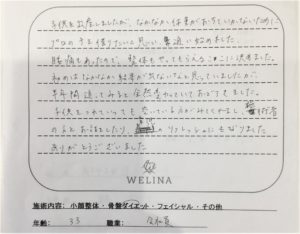 子供を出産しましたが、なかなか体重がおちていかないために
プロの手を借りたいと思い、通い始めました。
腰痛もあったので、整体もやってもらえるここに決めました。
初めはなかなか結果が出ないなぁと思っていましたが、
半年間通ってみると全然変わっていておどろきました。
子供をつれていっても
の人とお話をしたり、のリフレッシュにもなりました。
ありがとうございました。
WELINA
施術内容:小顔整体・骨盤ダイエット・フェイシャル・その他
年齢: 33 職業: 会社員